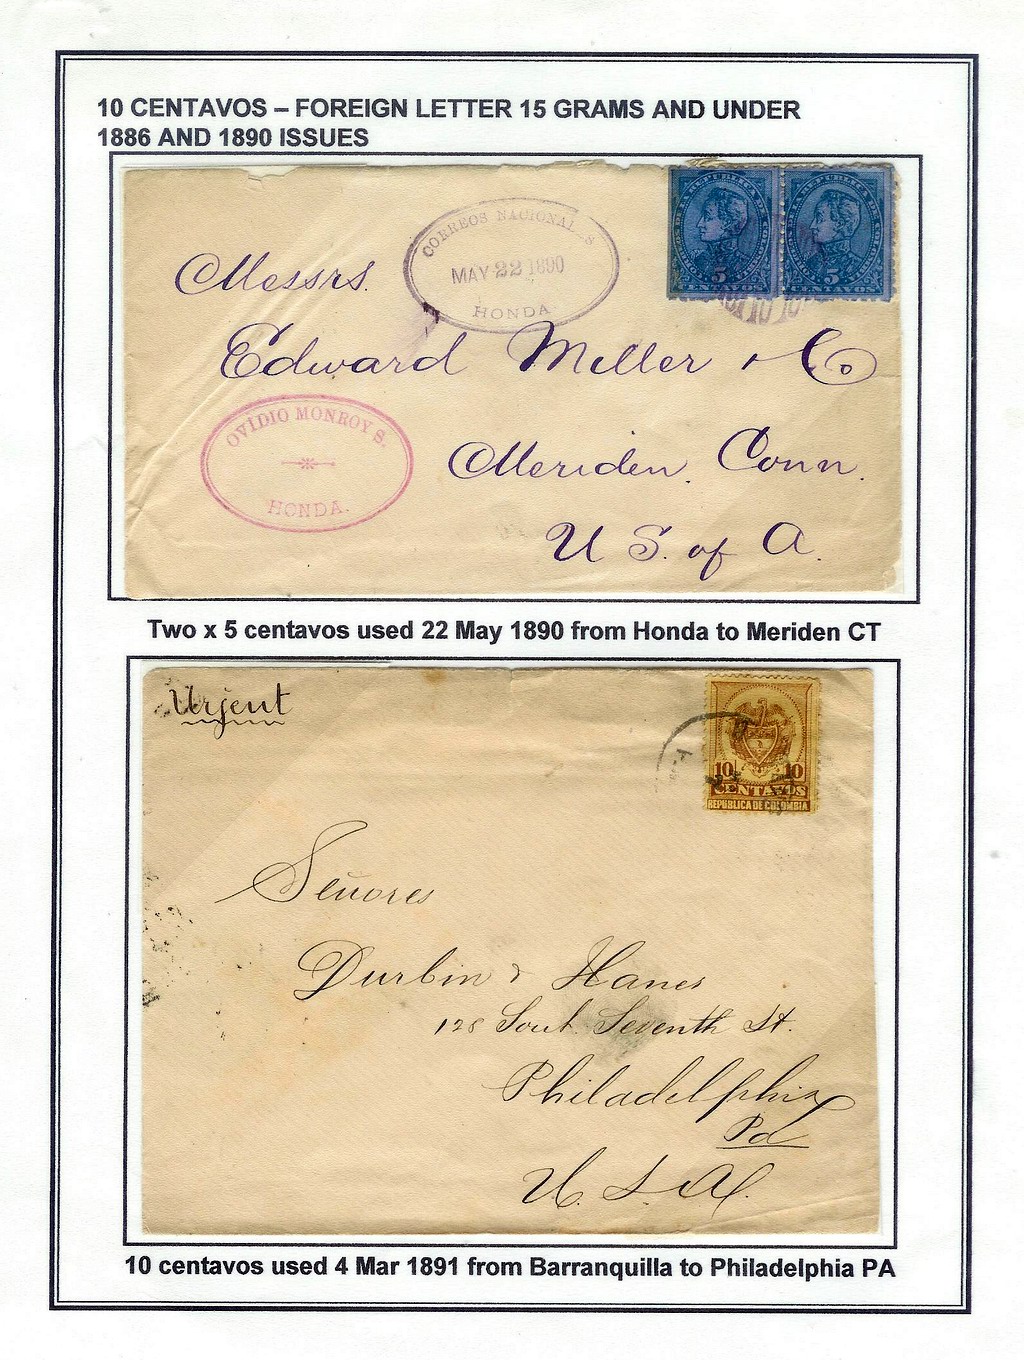 10 CENTAVOS – FOREIGN LETTER 15 GRAMS AND UNDER
1886 AND 1890 ISSUES
CORREOS NACIONALES
MAY 22 1890
HONDA
5 5
CENTAVOS CENTAVOS
Messrs.
Edward Miller & Co
OVIDIO MONROY S.
HONDA.
Meriden, Conn.
U S. of A.
Two x 5 centavos used 22 May 1890 from Honda to Meriden CT
Urjent
10 10
CENTAVOS
REPUBLICA DE COLOMBIA
Señores
Durbin & Hanes
128 Sout. Seventh St.
Philadelphia
Pa
U. S. A.
10 centavos used 4 Mar 1891 from Barranquilla to Philadelphia PA